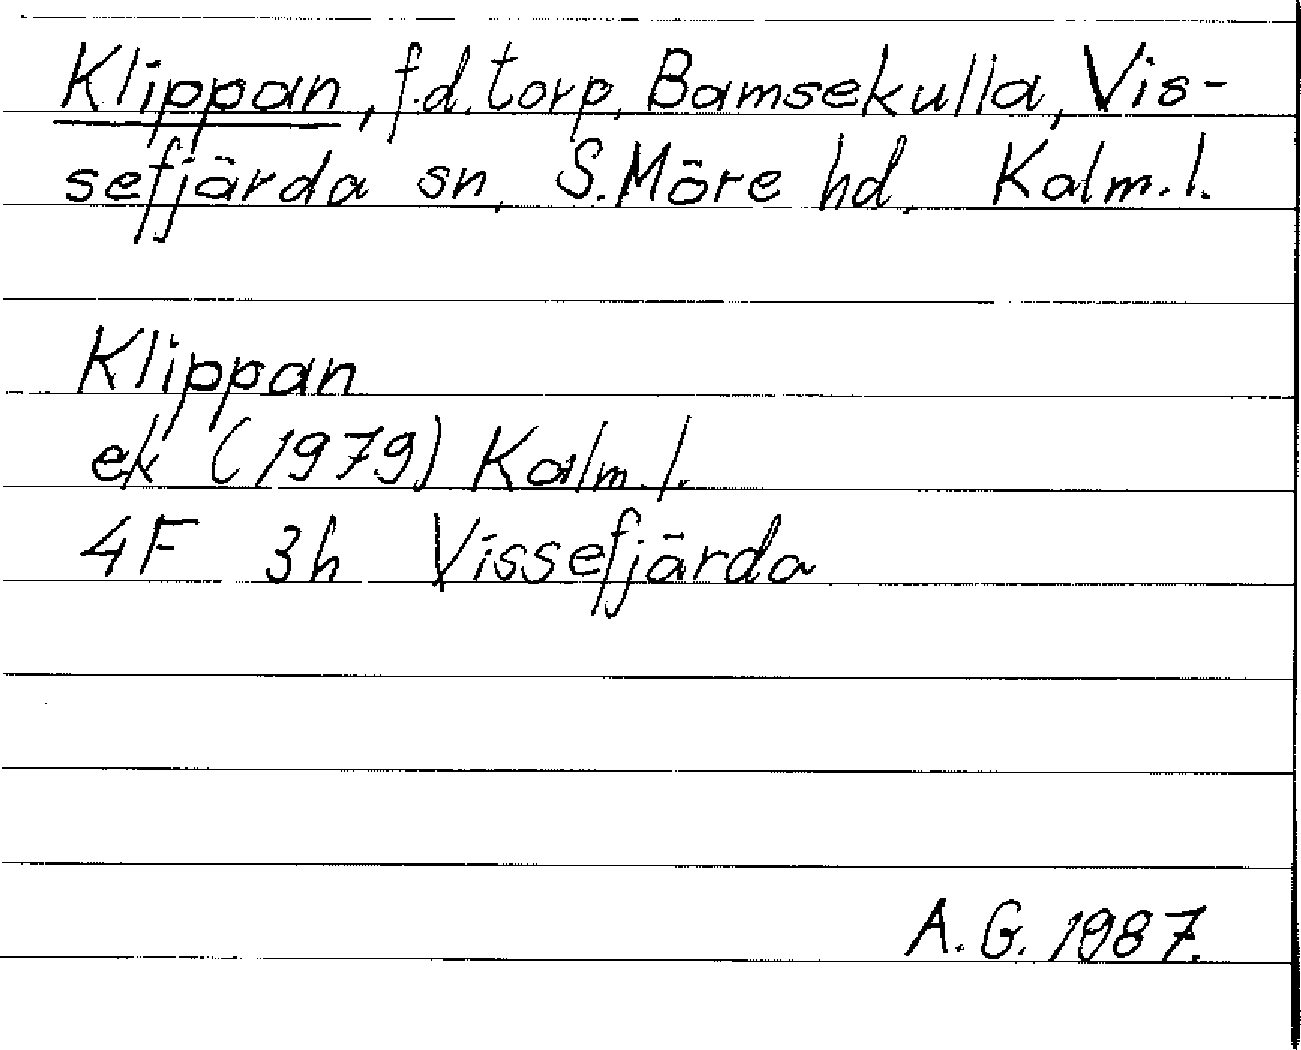 Klippan, f.d. torp, Bamsekulla, Vis-
sefjärda sn, S. Möre hd, Kalm. l.
Klippan
ek (1979) Kalm. l.
4F 3h Vissefjärda
A. G. 1987.